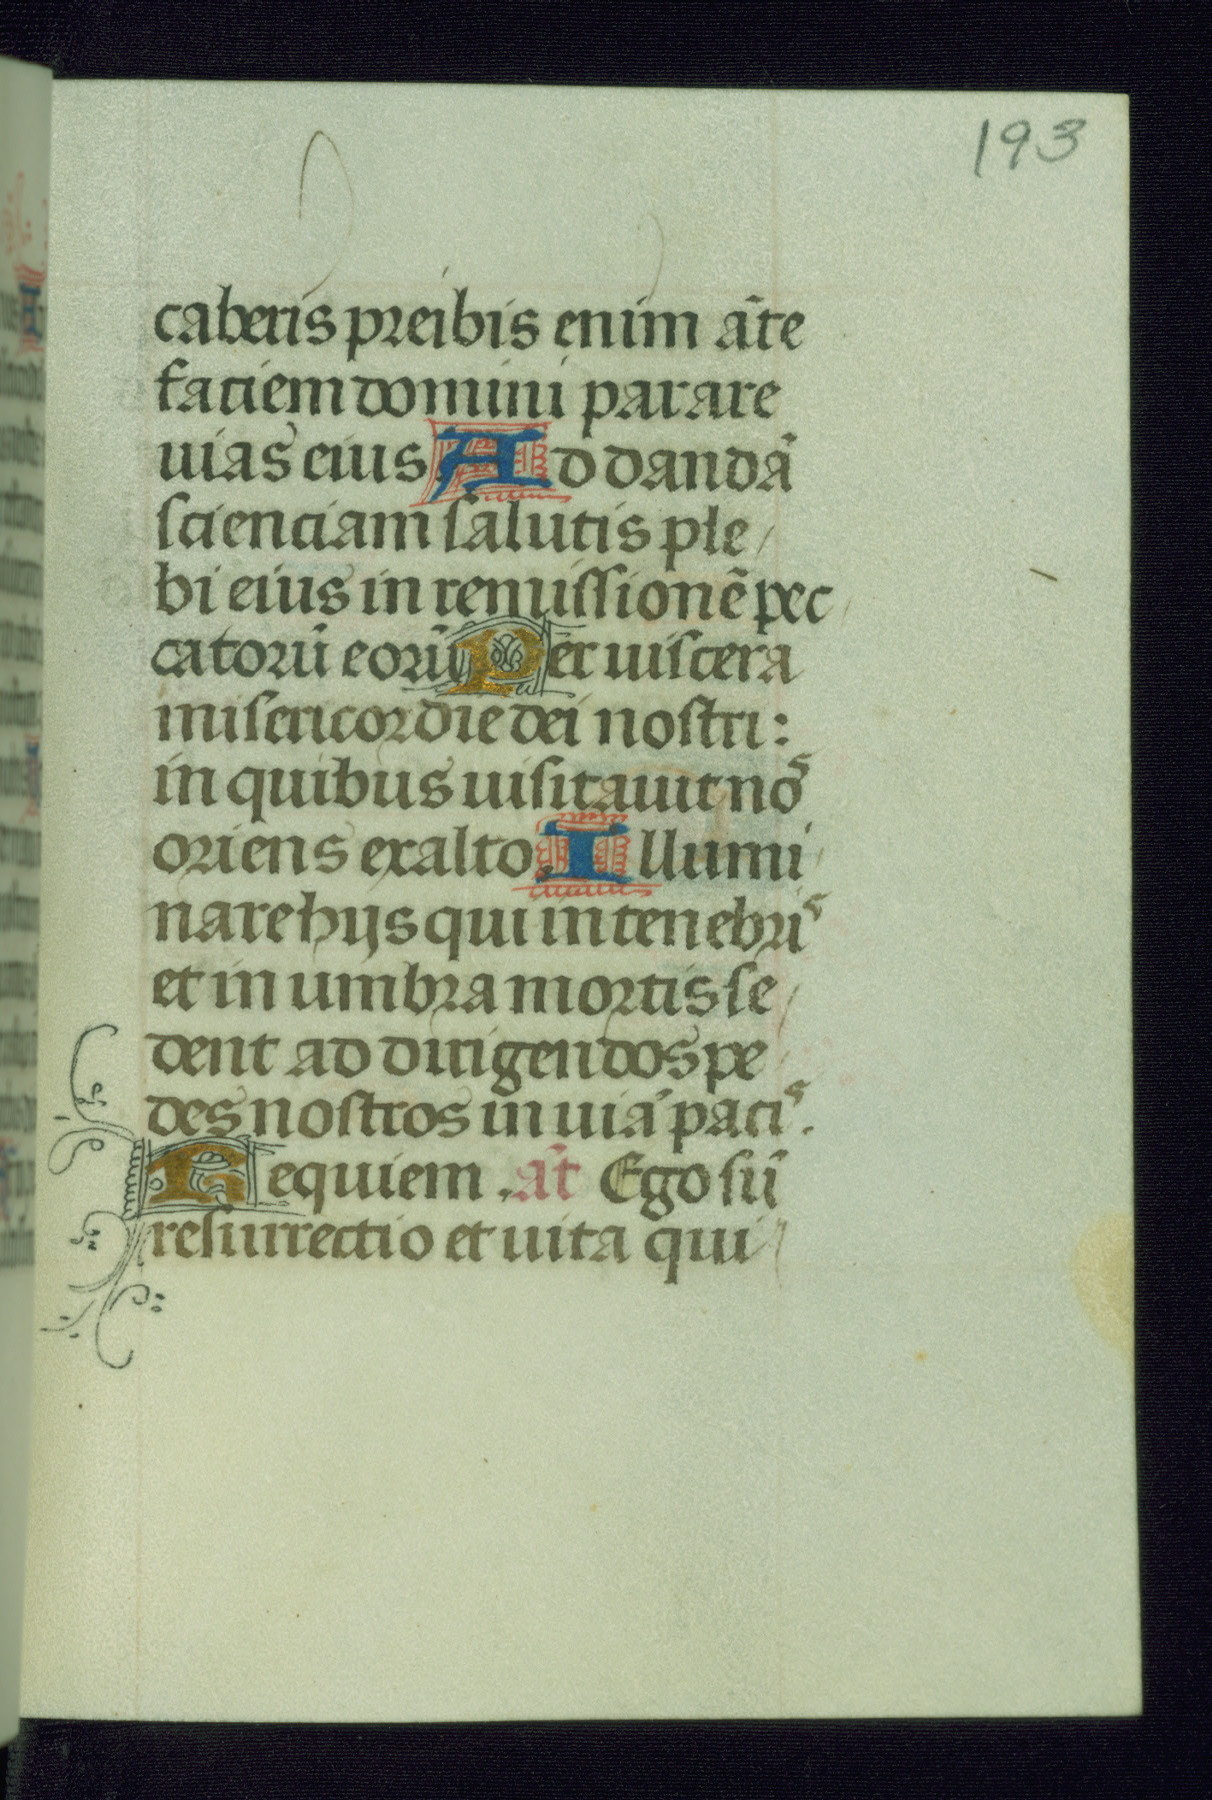 193
caberis preibis enim āte
faciem domini parare
uias eius Ad dandā
scienciam salutis ple
bi eius in remissionē pec
catorū eorū Per uiscera
misericordie dei nostri:
in quibus uisitauit nos
oriens exalto. Illumi
nare hijs qui in tenebris
et in umbra mortis se
dent ad dirigendos pe
des nostros in uiā pacis.
Requiem. an̄t Ego sū
resurrectio et uita qui